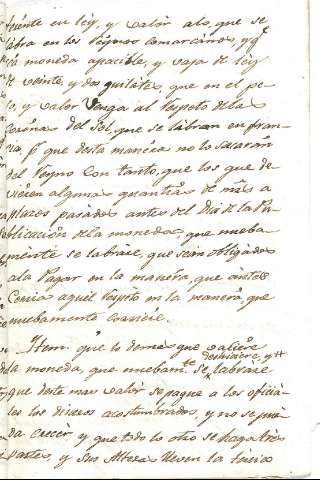 en ley, y valor alo, que se
labra en los Reynos comarcanos, y q.e
la moneda apacible, y vaja de ley
de veinte, y dos quilates, que en el pe-
so, y valor venga al respeto dela
Corona del Sol, que se labran en fran-
cia p.r que desta manera no lo sacaran
del Reyno con tanto, que los que de-
vieren algunas quantias de mrs a
plazos pasados antes del dia de la Pu-
blicación dela moneda, que nueba-
mente se labrare, que sean obligados
ala Pagar en la manera, que
Corria aquel respeto en la manera que
nuebamente corriere.
Item que lo demas que valiere
deshiziere, y
la moneda, que nuebam.te se labrare
que deste mas valor se pague a los oficia-
les los dineros acostumbrados, y no se pue-
da crecer, y que todo lo otro se haga tres
partes, y Sus Altezas lleven la tercia